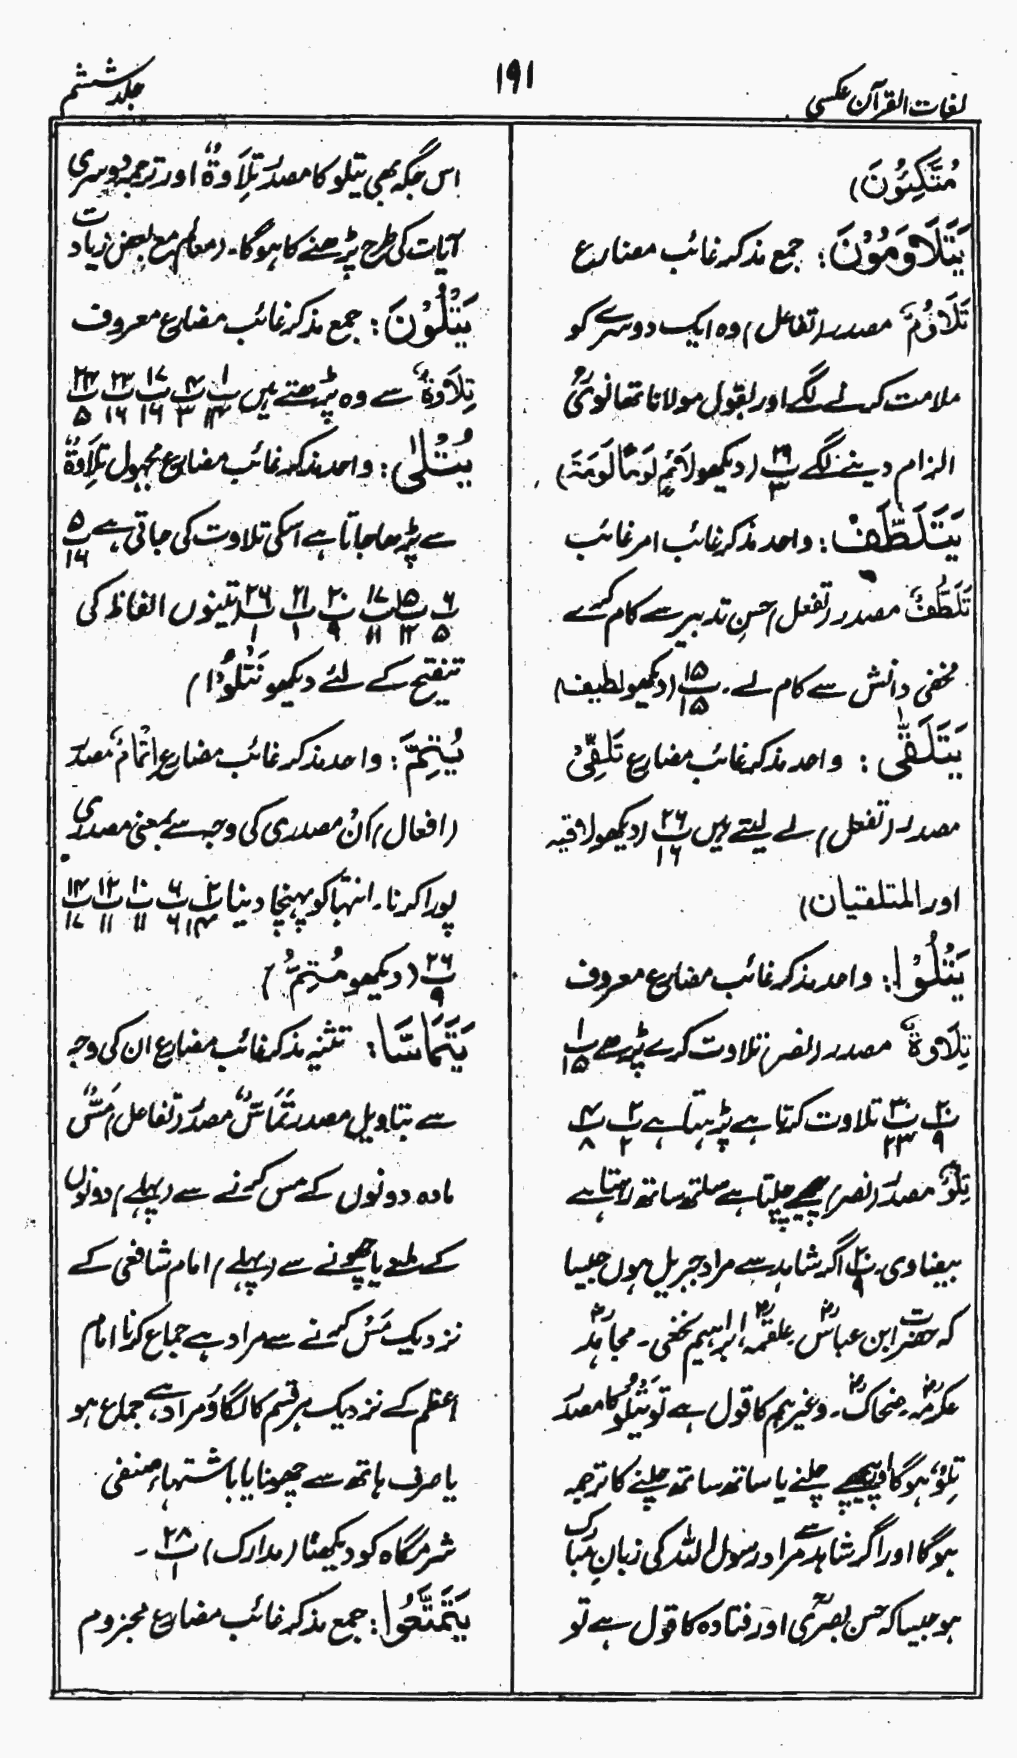 لغات القرآن عکسی
۱۹۱
جلد ششم
مُتَّکِئُوْنَ)
یَتَلَاوَمُوْنَ: جمع مذکر غائب مضارع
تَلَاوُمٌ مصدر (تفاعل) وہ ایک دوسرے کو
ملامت کرنے لگے اور بقول مولانا تھانویؒ
الزام دینے لگے پ۲۹/۳ (دیکھو لَائِمٍ لَوْمًا لَوْمَۃَ)
یَتَلَطَّفْ: واحد مذکر غائب امر غائب
تَلَطُّفٌ مصدر (تفعل) حسن تدبیر سے کام کرے
مخفی دانش سے کام لے۔ پ۱۵/۱۵ (دیکھو لطیف)
یَتَلَقّٰی: واحد مذکر غائب مضارع تَلَقِّیْ
مصدر (تفعل) لے لیتے ہیں پ۲۶/۱۶ (دیکھو لاقیہ
اور المتلقیان)
یَتْلُوْا: واحد مذکر غائب مضارع معروف
تِلَاوۃٌ مصدر (نصر) تلاوت کرے پڑھے پ۱/۱۵
پ۲۰/۹ پ۳۰/۲۳ تلاوت کرتا ہے پڑہتا ہے پ۲/۲ پ۴/۸
تِلْوٌ مصدر (نصر) پیچھے چلتا ہے ساتھ ساتھ رہتا ہے
بیضاوی پ۲۰/۹ اگر شاہد سے مراد جبریل ہوں جیسا
کہ حضرت ابن عباسؓ علقمہؒ ابراہیم نخعی۔ مجاہدؒ
عکرمہؒ ضحاکؒ۔ وغیرہم کا قول ہے تو یَتْلُوْ کا مصدر
تِلْوٌ ہوگا اور پیچھے چلنے یا ساتھ ساتھ چلنے کا ترجمہ
ہوگا اور اگر شاہد سے مراد رسول اللہ کی زبانِ مبارک
ہو جیسا کہ حسن بصریؒ اور قتادہ کا قول ہے تو
اس جگہ بھی یتلو کا مصدر تِلَاوۃٌ اور ترجمہ دوسری
آیات کی طرح پڑھنے کا ہوگا۔ (معالم مع بعض زیادت
یَتْلُوْنَ: جمع مذکر غائب مضارع معروف
تِلَاوۃٌ سے وہ پڑھتے ہیں پ۱/۱۴ پ۴/۳ پ۱۷/۱۶ پ۲۲/۱۶ پ۲۴/۵
یُتْلٰی: واحد مذکر غائب مضارع مجہول تِلَاوۃٌ
سے پڑھا جاتا ہے اسکی تلاوت کی جاتی ہے پ۵/۱۶
پ۶/۵ پ۱۵/۱۲ پ۱۷/۱۱ پ۲۰/۹ پ۲۱/۱ پ۲۶/۱ (تینوں الفاظ کی
تنقیح کے لئے دیکھو نَتْلُوْا)
یُتِمَّ: واحد مذکر غائب مضارع اِتْمَامٌ مصدر
(افعال) اَنْ مصدری کی وجہ سے بمعنی مصدری
پورا کرنا۔ انتہا کو پہنچا دینا پ۲/۱۴ پ۶/۶ پ۱۰/۱۱ پ۱۲/۱۱ پ۱۴/۱۷
پ۲۶/۹ (دیکھو مُتِمٌّ)
یَتَمَاسَّا: تثنیہ مذکر غائب مضارع ان کی وجہ
سے بتاویل مصدر تَمَاسٌّ مصدر (تفاعل) مَسٌّ
مادہ دونوں کے مس کرنے سے (پہلے) دونوں
کے ملنے یا چھونے سے (پہلے) امام شافعی کے
نزدیک مَسْ کرنے سے مراد ہے جماع کرنا امام
اعظم کے نزدیک ہر قسم کا لگاؤ مراد ہے، جماع ہو
یا صرف ہاتھ سے چھونا یا باشتہاء صنفی
شرمگاہ کو دیکھنا (مدارک) پ۲۸/۱ ۔
یَتَمَتَّعُوْا: جمع مذکر غائب مضارع مجزوم